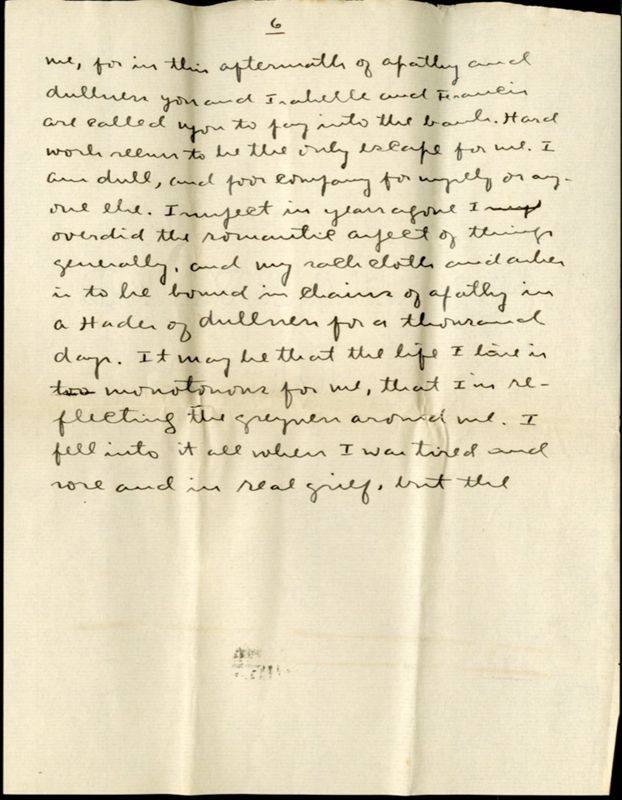 6
me, for in this aftermath of apathy and
dullness you and Isabelle and Francis
are called upon to pay into the bank. Hard
work seems to be the only escape for me. I
am dull, and poor company for myself or any-
one else. I suspect in years agone I
overdid the romantic aspect of things
generally, and my sackcloth and ashes
is to be bound in chains of apathy in
a Hades of dullness for a thousand
days. It may be that the life I live is
too monotonous for me, that I'm re-
flecting the greyness around me. I
fell into it all when I was tired and
sore and in real grief, but the